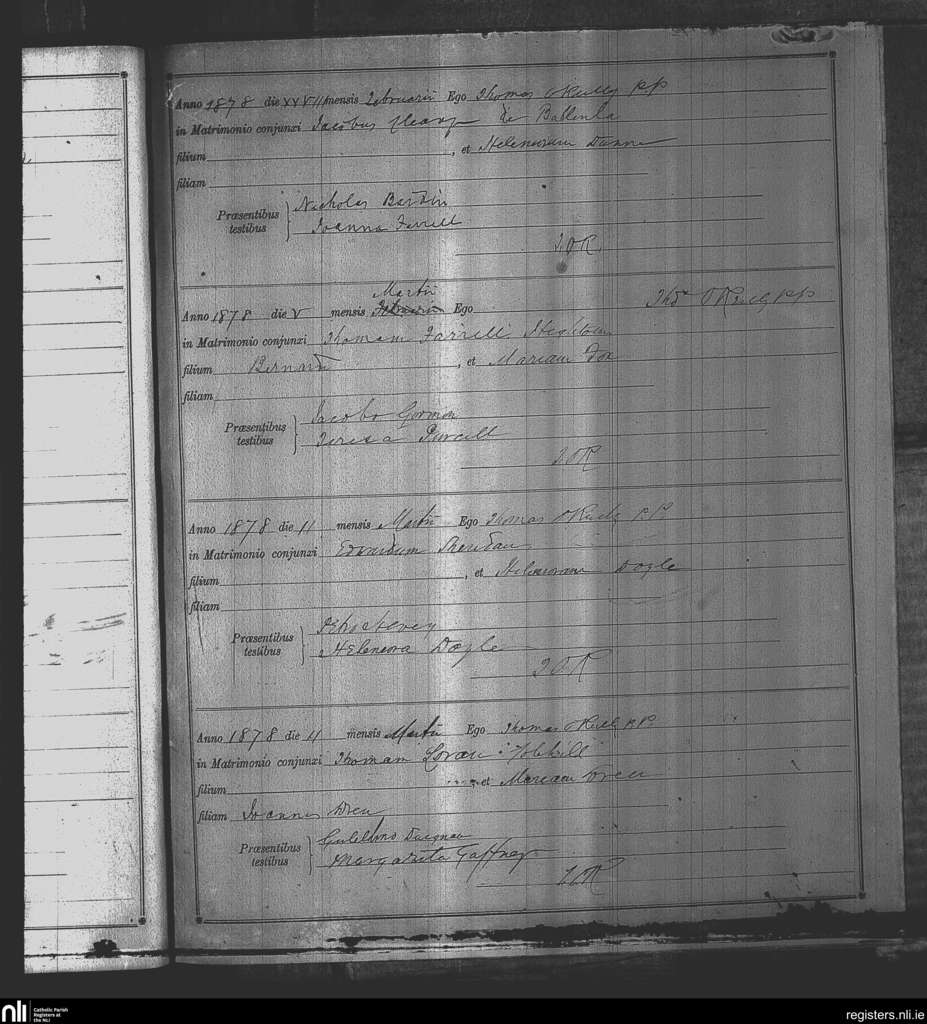 Anno 1878 die XXVII mensis Februarii Ego Thomas O'Reilly P.P.
in Matrimonio conjunxi Jacobus de
filium , et Helenoram Dunne
filiam
Præsentibus testibus Nicholas
Joanna Farrell
T.O.R.
Martii
Anno 1878 die V mensis Februarii Ego Thos O'Reilly P.P.
in Matrimonio conjunxi Thomam Farrell
filium Bernardi , et Mariam
filiam
Præsentibus testibus Jacobo Gorman
Teresa Purcell
T.O.R
Anno 1878 die 11 mensis Martii Ego Thomas O'Reilly P.P.
in Matrimonio conjunxi Edwardum Sheridan
filium , et Helenoram Doyle
filiam
Præsentibus testibus
Helenora Doyle
T.O.R
Anno 1878 die 11 mensis Martii Ego Thomas O'Reilly P.P.
in Matrimonio conjunxi Thomam
filium et Mariam
filiam Joannis
Præsentibus testibus Gulielmo
Margarita Gaffney
T.O.R
nli Catholic Parish
Registers at
the NLI
registers.nli.ie